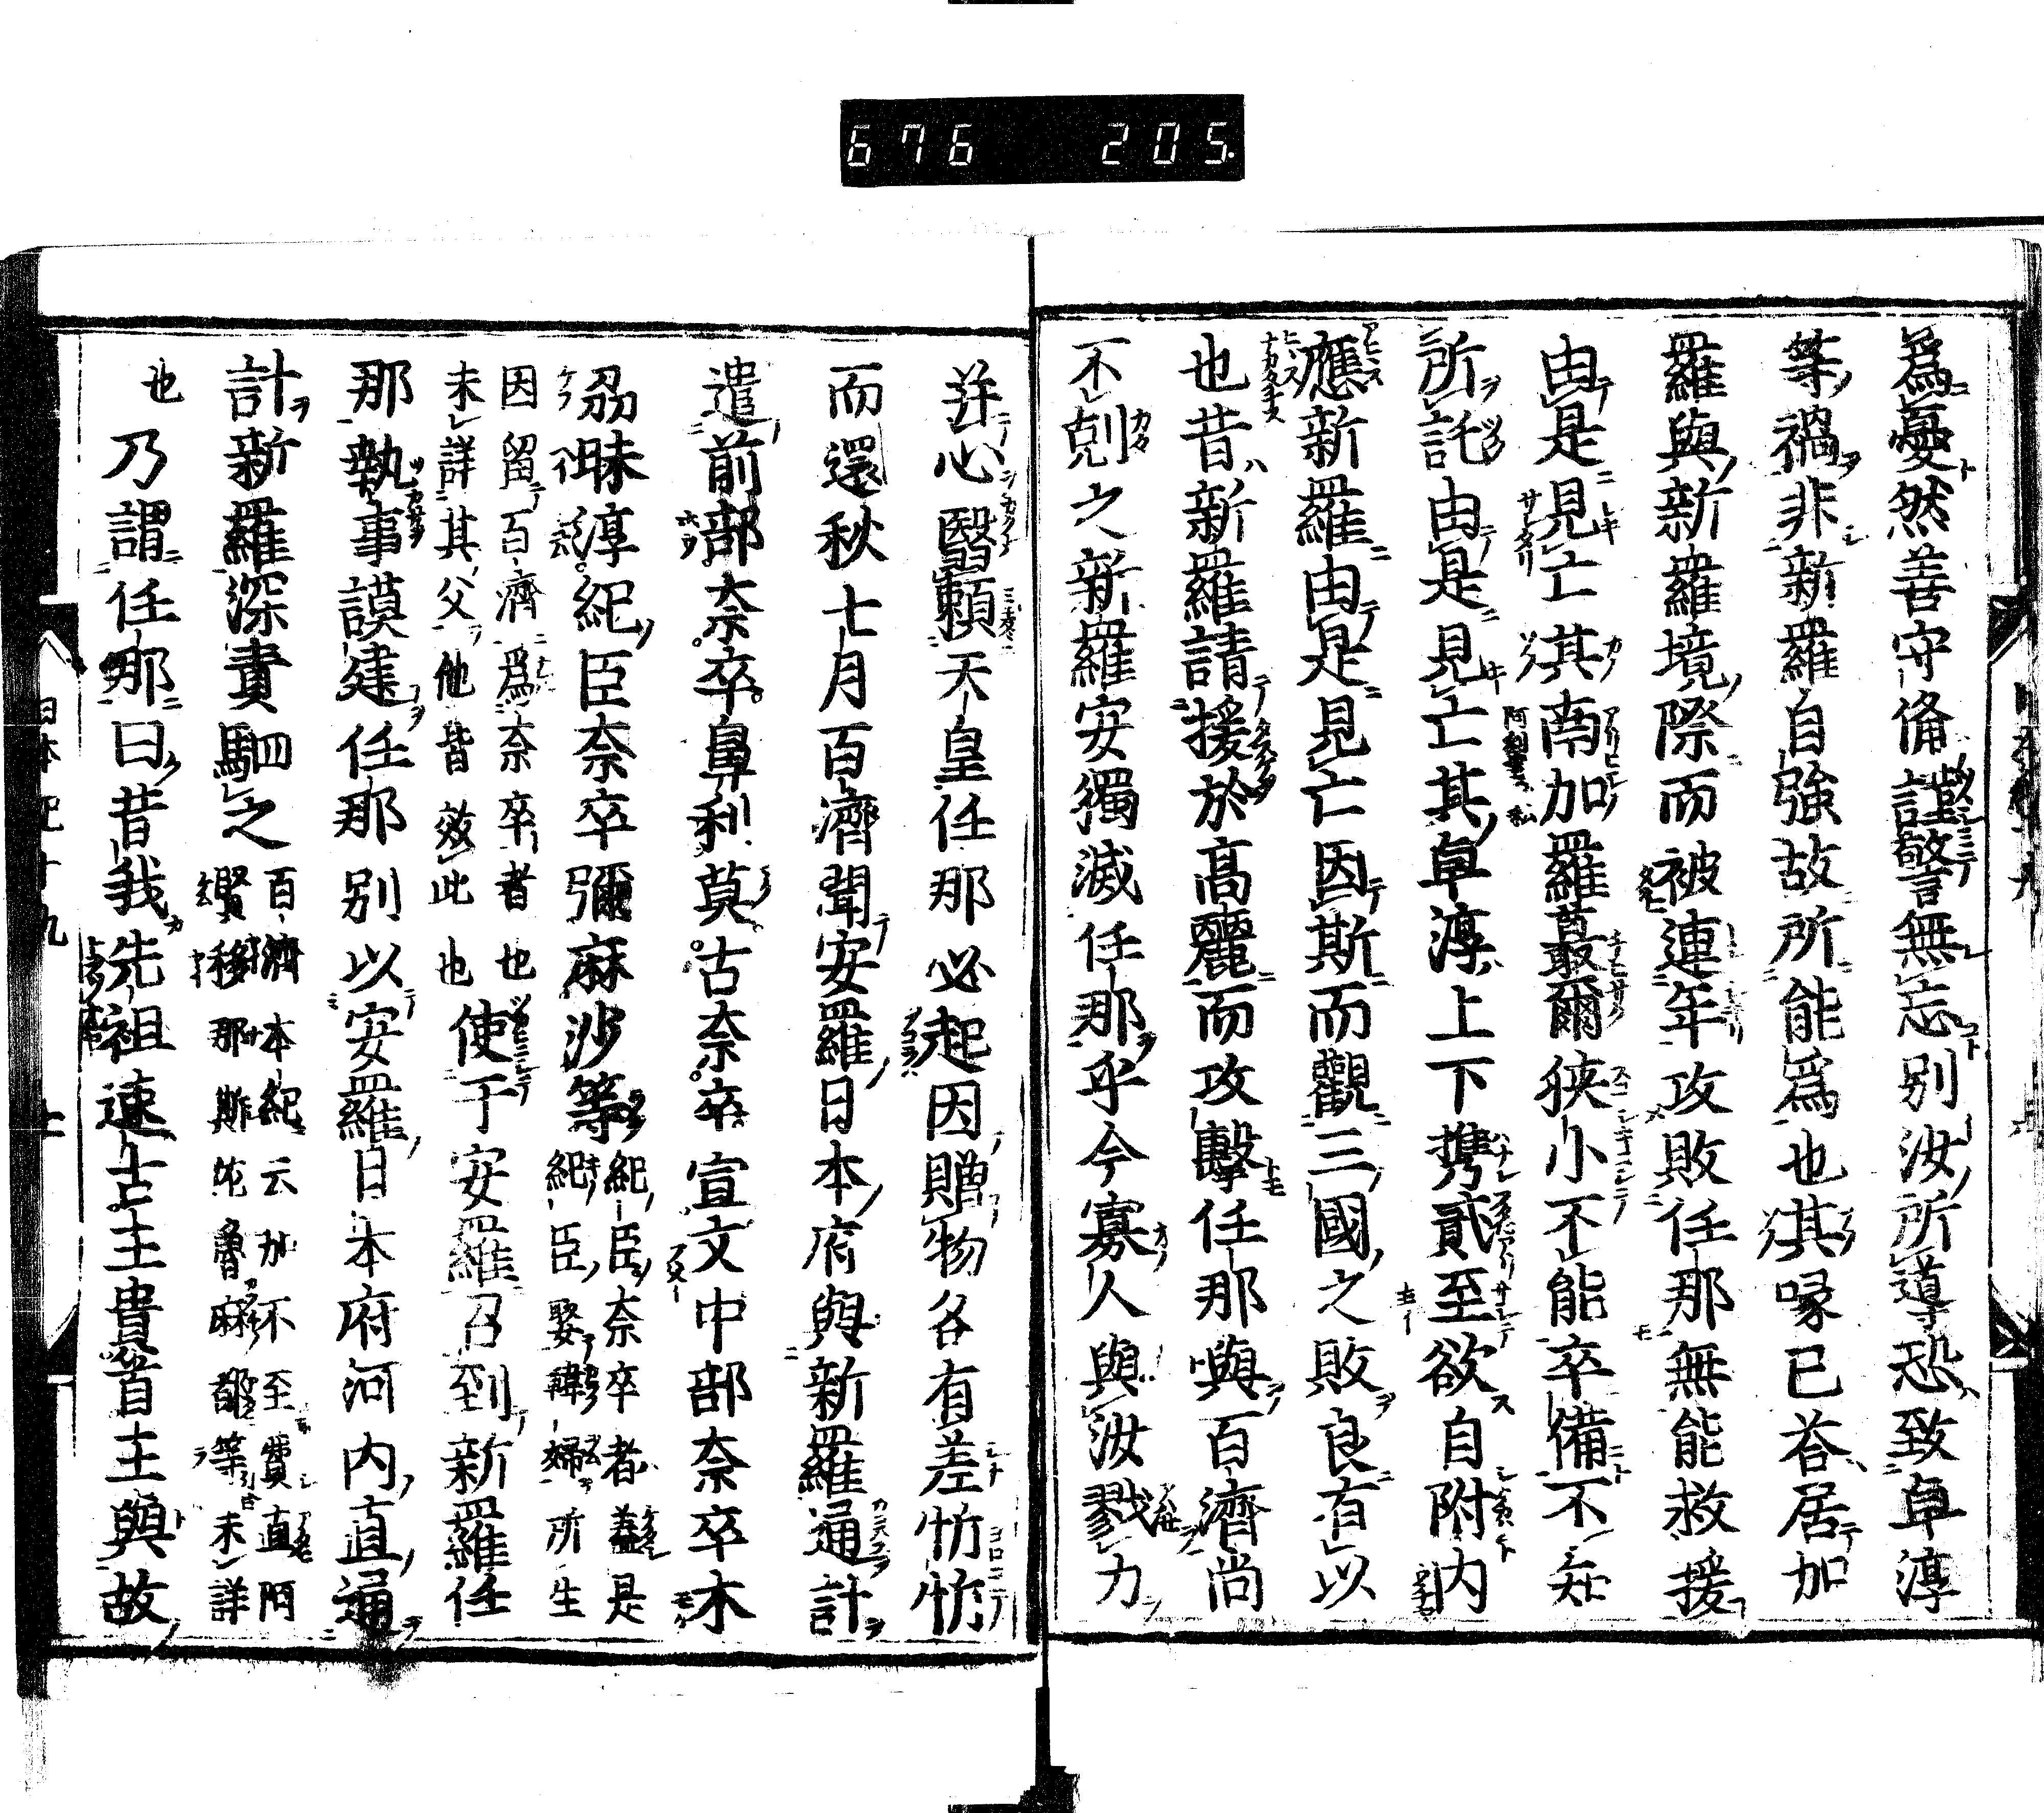 676 205
爲憂然善守備謹警無忘別汝所導恐致卓淳
等禍非新羅自強故所能爲也其㖨己呑居加
羅與新羅境際而被連年攻敗任那無能救援
由是見亡其南加羅蕞爾狹小不能卒備不知
所託由是見亡其卓淳上下携貳至欲自附内
應新羅由是見亡因斯而觀三國之敗良有以
也昔新羅請援於高麗而攻擊任那與百濟尚
不剋之新羅安獨滅任那乎今寡人與汝戮力
并心翳賴天皇任那必起因贈物各有差忻忻
而還秋七月百濟聞安羅日本府與新羅通計
遣前部奈卒鼻利莫古奈卒宣文中部奈卒木
刕眛淳紀臣奈卒彌麻沙等
紀臣奈卒者蓋是
紀臣娶韓婦所生
因留百濟爲奈卒者也
未詳其父他皆效此也
使于安羅召到新羅任
那執事謨建任那別以安羅日本府河内直通
計新羅深責駡之
百濟本紀云加不至費直阿
賢移那斯佐魯麻都等未詳
也
乃謂任那曰昔我先祖速古王貴首王與故
日本紀十九